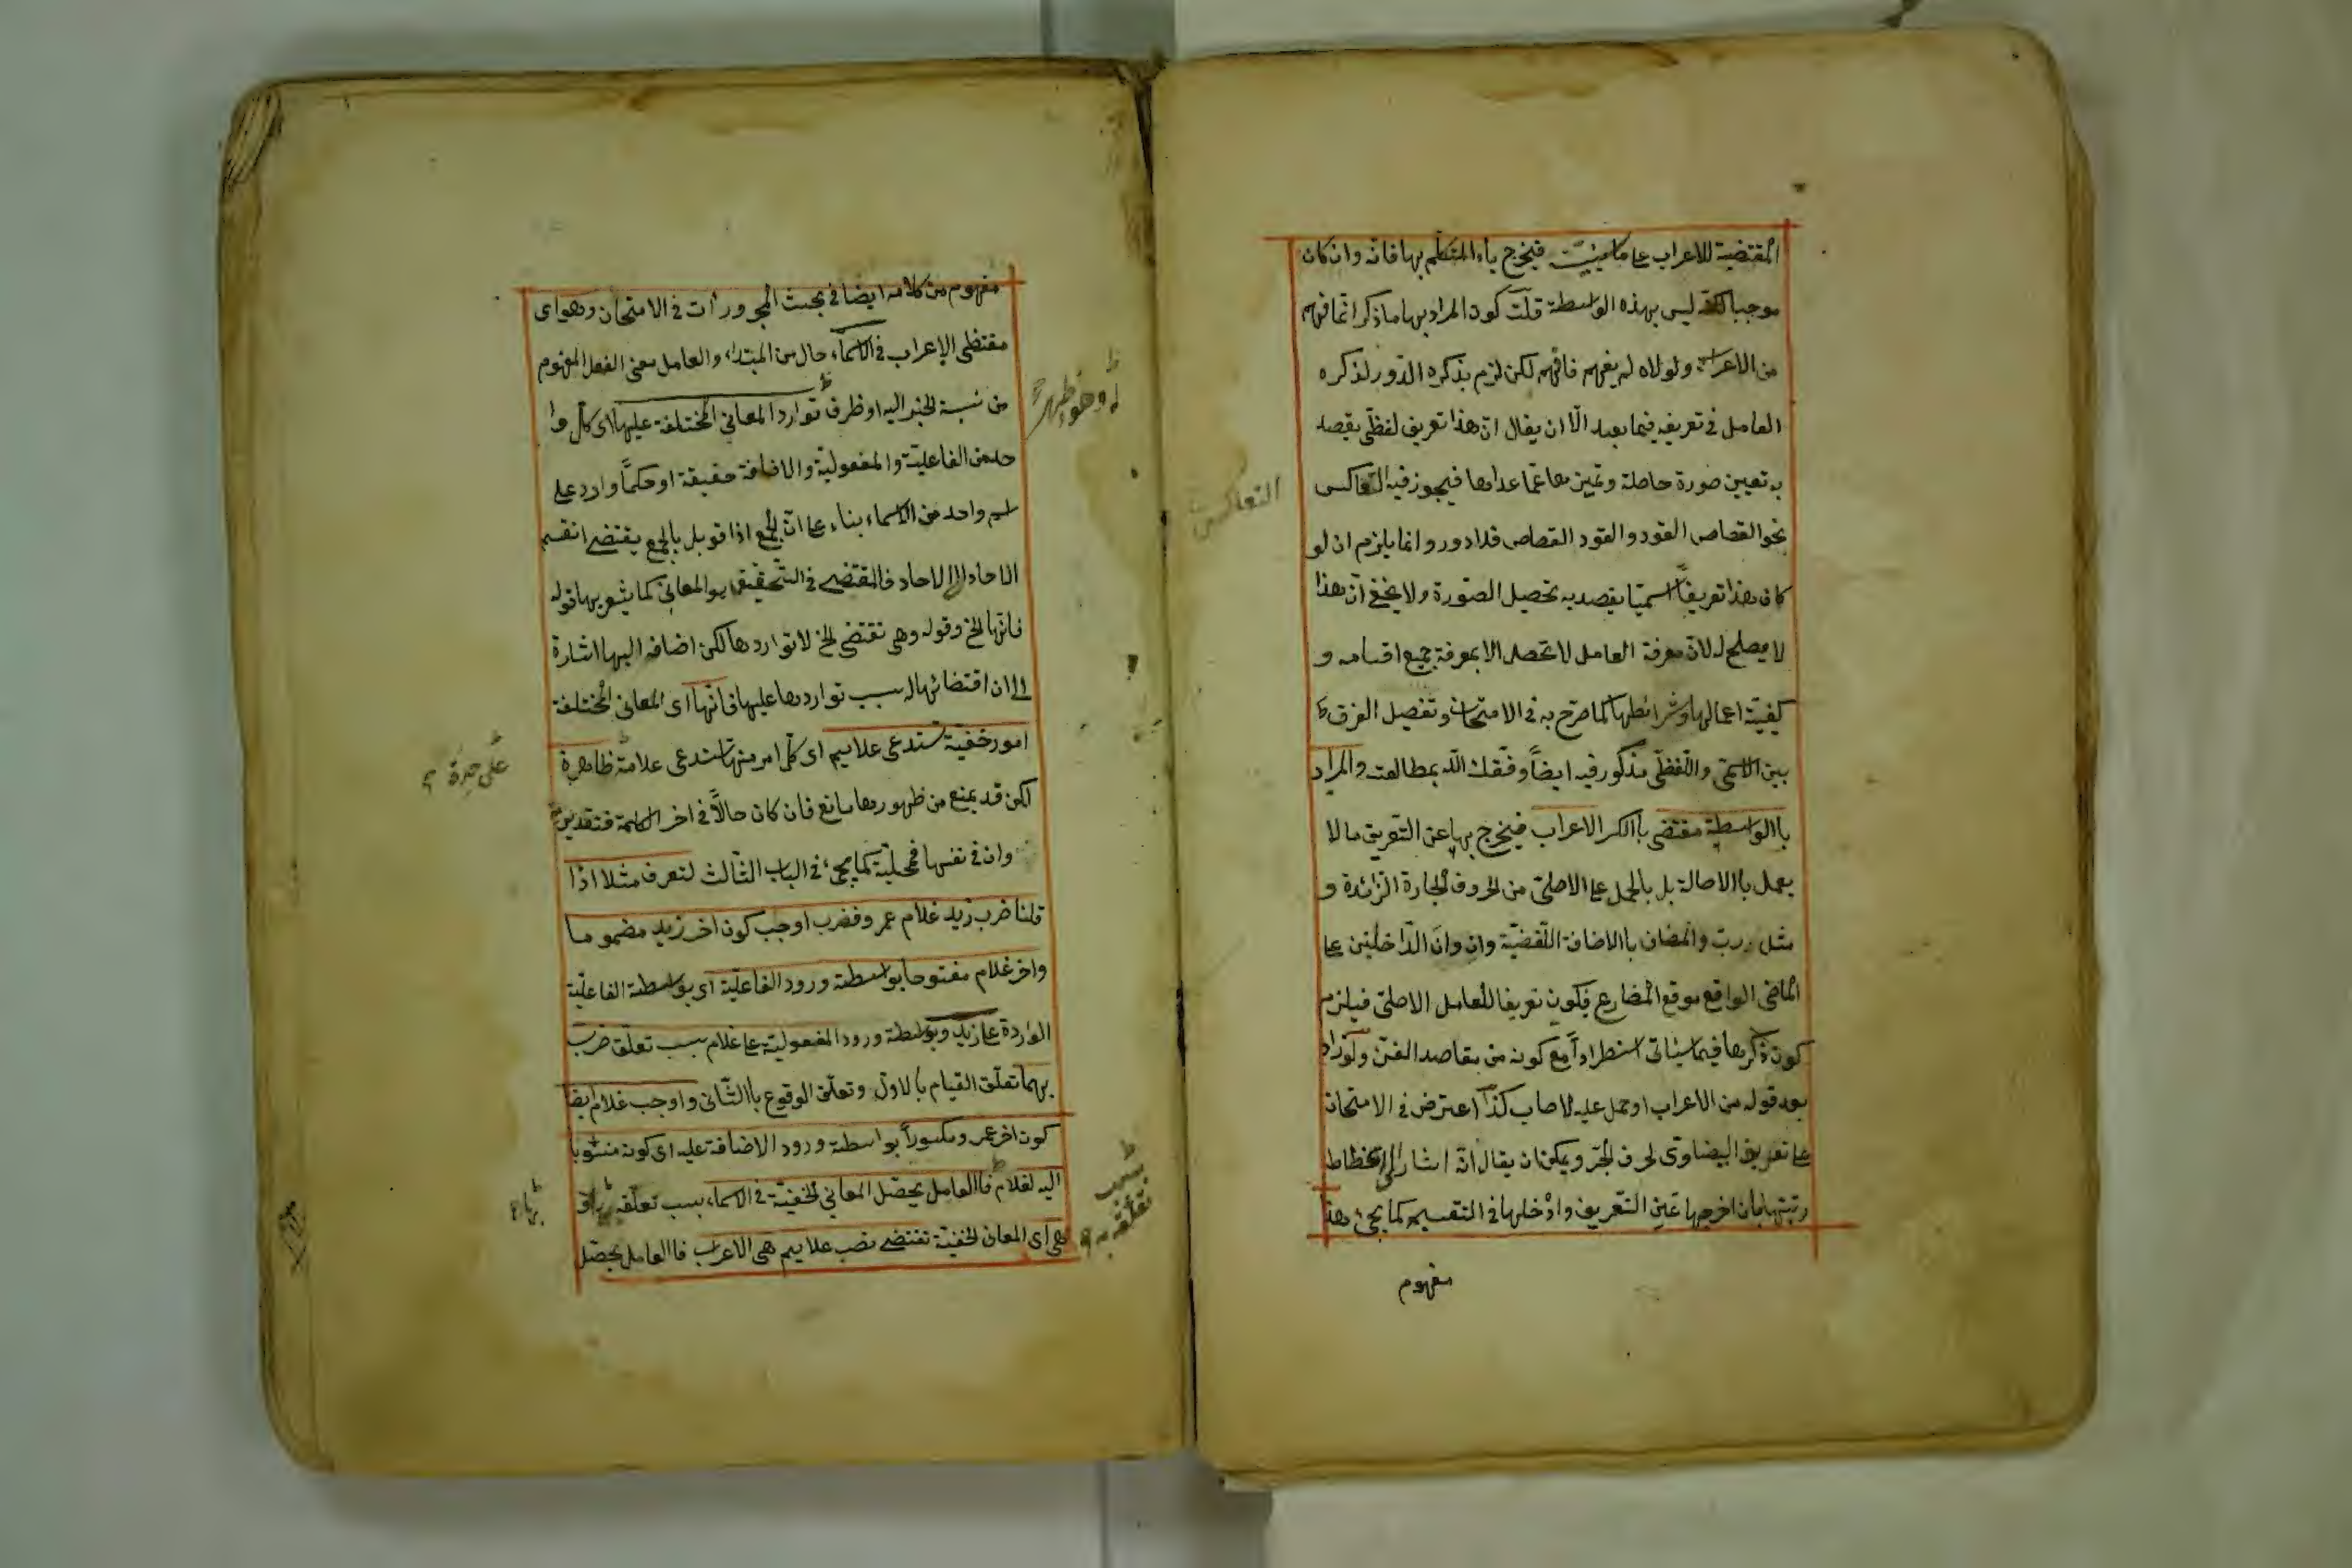 المقتضية للاعراب على ما سيثبت فيخرج ياء المتكلم بها فانه وان كان
موجبا لكنه ليس بهذه الواسطة قلت كون المراد بها ما ذكر انما فهم
من الاعراب ولولاه لم يفهم فافهم لكن لزم بذكره الدور لذكره
العامل في تعريفه فيما بعد الّا ان يقال انّ هذا تعريف لفظّي يقصد
به تعيين صورة حاصلة وتميزها عمّا عداها فيجوز فيه التعاكس
نحو القصاص القود والقود القصاص فلا دور وانما يلزم ان لو
كان هذا تعريفاً اسميّا يقصد به تحصيل الصّورة ولا يخفى انّ هذا
لا يصلح له لانّ معرفة العامل لا تحصل الا بمعرفة جميع اقسامه و
كيفيّة اعمالها وشرائطها كما صرّح به في الامتحان وتفصيل الفرق
بين الاسمّي واللّفظّي مذكور فيه ايضاً وفقك اللّه بمطالعته والمراد
باالواسطة مقتضى باالكسر الاعراب فيخرج بها عن التعريف ما لا
يعمل باالاصالة بل بالحمل على الاصلّي من الحروف الجارة الزّائدة و
مثل ربّ والمضاف باالاضافة اللّفضيّة وان وانَ الدّاخلتين على
الماضى الواقع موقع المضارع فيكون تعريفا للعامل الاصلّي فيلزم
كون ذكرها فيما سياتى استطراداً مع كونه من مقاصد الفنّ ولو زاد
بعد قوله من الاعراب او حمل عليه لاصاب كذا اعترض في الامتحان
على تعريف البيضاوّى لحرف الجّر ويمكن ان يقال انّه اشار الى انحطاط
رتبتها بان اخرجها عن التّعريف وادْخلها في التقسيم كما يجئ هذا
مفهوم
التعاكس
مفهوم من كلامه ايضا في بحث المجرورات في الامتحان وهو اى
مقتضى الاعراب في الاسماء حال من المبتداء والعامل معنى الفعل المفهوم
من نسبة الخبر اليه او ظرف توارد المعاني المختلفة عليها اى كل وا
حد من الفاعليّة والمفعوليّة والاضافة حقيقة او حكمًا وارد على
اسم واحد من الاسماء بناء على انّ الجمع اذا قوبل بالجمع يقتضى انقسم
الاحاد الى الاحاد فالمقتضى في التّحقيق هو المعانى كما يشعر بها قوله
فانّها الخ وقوله وهى تقتضى الخ لا تواردها لكن اضافه اليها اشارة
الى ان اقتضائها له سبب تواردها عليها فانّها اى المعانى المختلفة
امور خفية تستدعى علايم اى كلّ امر منها تستدعى علامة ظاهرة
لكن قد يمنع من ظهورها مانع فان كان حالاًّ في اخر الكلمة فتقديريّة
وان في نفسها فمحليّة كما يجئ في الباب الثّالث لتعرف مثلا اذا
قلنا ضرب زيد غلام عمرو فضرب اوجب كون اخر زيد مضموما
واخر غلام مفتوحا بواسطة ورود الفاعليّة اى بواسطة الفاعليّة
الواردة على زيد وبواسطة ورود المفعولية على غلام بسبب تعلّق ضرب
بهما تعلّق القيام بالاوّل وتعلّق الوقوع باالثّانى واوجب غلام ايضا
كون اخر عمرو مكسوراً بواسطة ورود الاضافة عليه اى كونه منسوبا
اليه لغلام فاالعامل يحصّل المعاني الخفيّة في الاسماء بسبب تعلّقه
وهى اى المعانى الخفيّة تقتضى نصب علايم هى الاعراب فاالعامل يحصّل
على حدة
بسبب
تعلّقه به